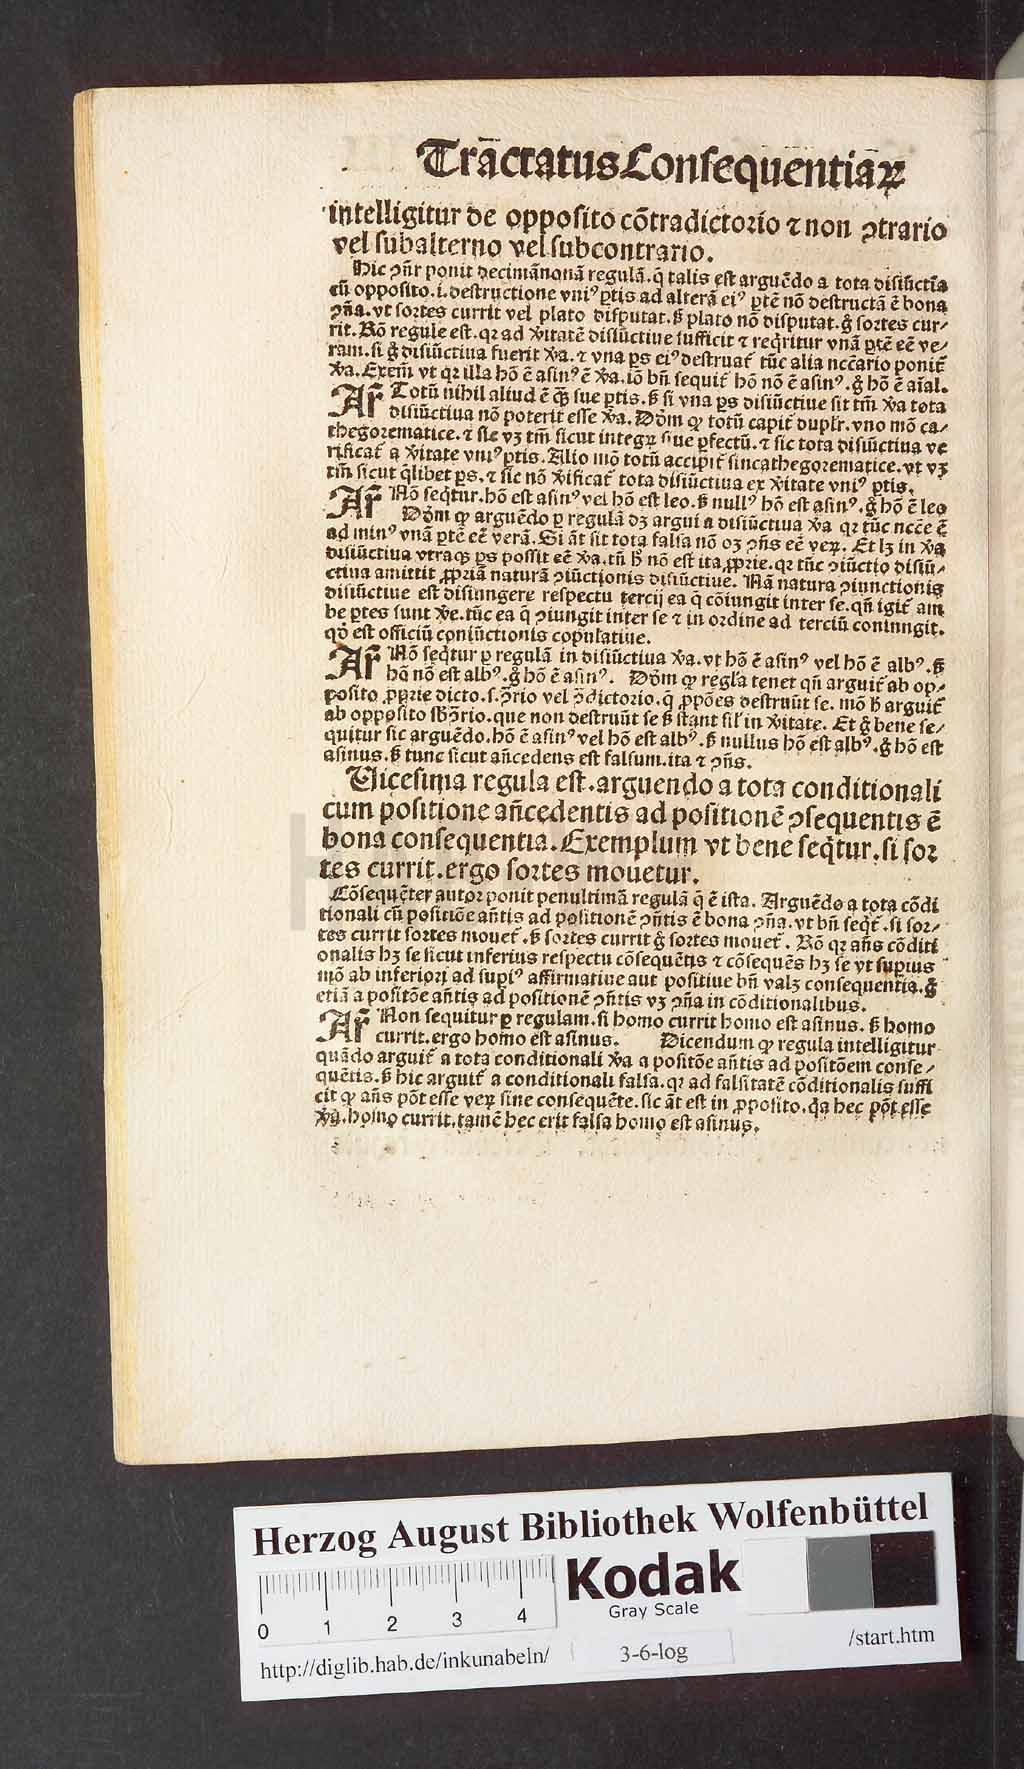 Tractatus Consequentiaꝝ
intelligitur de opposito cõtradictorio ⁊ non ꝯtrario
vel subalterno vel subcontrario.
Hic ꝯñr ponit decimãnonã regulã. q̃ talis est arguẽdo a tota disiũctĩa
cũ opposito .i. destructione vniꝰ ꝑtis ad alterã eiꝰ ꝑtẽ nõ destructã ẽ bona
ꝯña. vt sortes currit vel plato disputat. ß plato nõ disputat. g̊ sortes cur⸗
rit. Rõ regule est. qꝛ ad v̓itatẽ disiũctiue sufficit ⁊ reqͥritur vnã ꝑtẽ eẽ ve⸗
ram. si g̊ disiũctiua fuerit v̓a. ⁊ vna ps eiꝰ destruat̃ tũc alia neccãrio ponit̃
v̓a. Exem̃ vt qꝛ illa hõ ẽ asinꝰ ẽ v̓a. iõ bñ sequit̃ hõ nõ ẽ asinꝰ. g̊ hõ ẽ aĩal.
Ar̃ Totũ nihil aliud ẽ q̃ꝫ sue ꝑtis. ß si vna ps disiũctiue sit tm̃ v̓a tota
disiũctiua nõ poterit esse v̓a. Dõm ꝙ totũ capit̃ duplr̃. vno mõ ca⸗
thegorematice. ⁊ sic vꝫ tm̃ sicut integꝝ siue ꝑfectũ. ⁊ sic tota disiũctiua ve
rificat̃ a v̓itate vniꝰ ꝑtis. Alio mõ totũ accipit̃ sincathegorematice. vt vꝫ
tm̃ sicut q̃libet ps. ⁊ sic nõ v̓ificat̃ tota disiũctiua ex v̓itate vniꝰ ꝑtis.
Ar̃ Nõ seqͥtur. hõ est asinꝰ vel hõ est leo. ß nullꝰ hõ est asinꝰ. g̊ hõ ẽ leo
Dõm ꝙ arguẽdo ꝑ regulã dꝫ argui a disiũctiua v̓a qꝛ tũc ncẽe ẽ
ad minꝰ vnã ꝑtẽ eẽ verã. Si ãt sit tota falsa nõ oꝫ ꝯñs eẽ veꝝ. Et lꝫ in v̓a
disiũctiua vtraqꝫ ps possit eẽ v̓a. tñ h̓ nõ est ita ꝓprie. qꝛ tũc ꝯiũctio disiũ⸗
ctiua amittit ꝓpriã naturã ꝯiũctionis disiũctiue. Nã natura ꝯiunctionis
disiũctiue est disiungere respectu tercij ea q̃ cõiungit inter se. qñ igit̃ am
be ꝑtes sunt v̓e. tũc ea q̃ ꝯiungit inter se ⁊ in ordine ad terciũ coniungit.
qd̓ est officiũ coniũctionis copulatiue.
Ar̃ Nõ seqͥtur ꝑ regulã in disiũctiua v̓a. vt hõ ẽ asinꝰ vel hõ ẽ albꝰ. ß
hõ nõ est albꝰ. g̊ hõ ẽ asinꝰ. Dõm ꝙ regl̃a tenet qñ arguit̃ ab op⸗
posito ꝓprie dicto. s. ꝯ̃rio vel ꝯ̃dictorio. q̃ ꝓpões destruũt se. mõ h̓ arguit̃
ab opposito sb̓ꝯ̃rio. que non destruũt se ß stant sil̃ in v̓itate. Et g̊ bene se⸗
quitur sic arguẽdo. hõ ẽ asinꝰ vel hõ est albꝰ. ß nullus hõ est albꝰ. g̊ hõ est
asinus. ß tunc sicut añcedens est falsum. ita ⁊ ꝯñs.
Vicesima regula est. arguendo a tota conditionali
cum positione añcedentis ad positionẽ ꝯsequentis ẽ
bona consequentia. Exemplum vt bene seqͥtur. si sor
tes currit. ergo sortes mouetur.
Cõsequẽter autor ponit penultimã regulã q̃ ẽ ista. Arguẽdo a tota cõdi
tionali cũ positiõe añtis ad positionẽ ꝯñtis ẽ bona ꝯña. vt bñ seqͥt̃. si sor⸗
tes currit sortes mouet̃. ß sortes currit g̊ sortes mouet̃. Rõ qꝛ añs cõditi
onalis hꝫ se sicut inferius respectu cõsequẽtis ⁊ cõsequẽs hꝫ se vt supius
mõ ab inferiori ad supiꝰ affirmatiue aut positiue bñ valꝫ consequentia. g̊
etiã a positõe añtis ad positionẽ ꝯñtis vꝫ ꝯña in cõditionalibus.
Ar̃ Non sequitur ꝑ regulam. si homo currit homo est asinus. ß homo
currit. ergo homo est asinus. Dicendum ꝙ regula intelligitur
quãdo arguit̃ a tota conditionali v̓a a positõe añtis ad positõem conse⸗
quẽtis. ß hic arguit̃ a conditionali falsa. qꝛ ad falsitatẽ cõditionalis suffi
cit ꝙ añs põt esse veꝝ sine consequẽte. sic ãt est in ꝓposito. qͥa hec põt esse
v̓a. homo currit. tamẽ hec erit falsa homo est asinus.
Herzog August Bibliothek Wolfenbüttel
Kodak
Gray Scale
0 1 2 3 4
http://diglib.hab.de/inkunabeln/ 3-6-log /start.htm